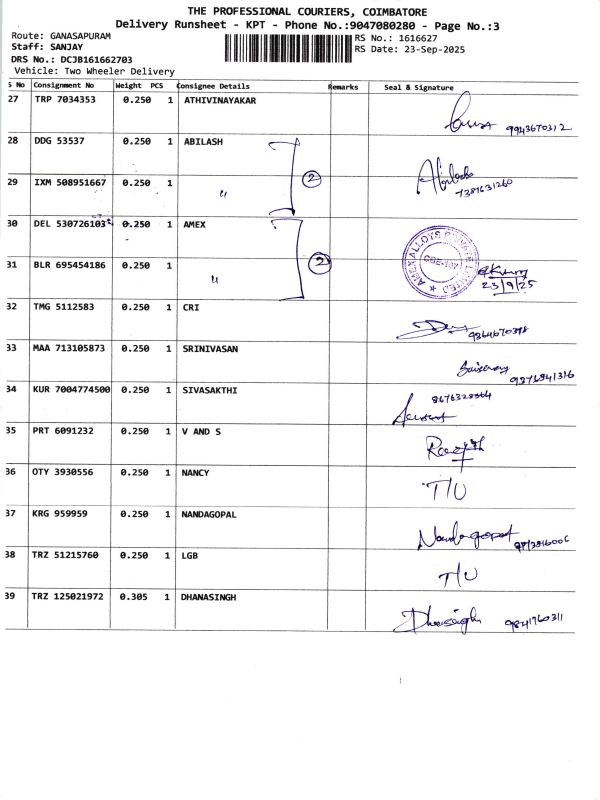 THE PROFESSIONAL COURIERS, COIMBATORE
Delivery Runsheet - KPT - Phone No.:9047080280 - Page No.:3
Route: GANASAPURAM
RS No.: 1616627
Staff: SANJAY
RS Date: 23-Sep-2025
DRS No.: DCJB161662703
Vehicle: Two Wheeler Delivery
S No Consignment No Weight PCS Consignee Details Remarks Seal & Signature
27 TRP 7034353 0.250 1 ATHIVINAYAKAR
9943670312
28 DDG 53537 0.250 1 ABILASH
2
29 IXM 508951667 0.250 1 "
7387631260
30 DEL 530726103 0.250 1 AMEX
AMEX ALLOYS PRIVATE LIMITED
CBE-107
31 BLR 695454186 0.250 1 "
2
23/9/25
32 TMG 5112583 0.250 1 CRI
9364670398
33 MAA 713105873 0.250 1 SRINIVASAN
9376841316
34 KUR 7004774500 0.250 1 SIVASAKTHI
8676328564
35 PRT 6091232 0.250 1 V AND S
36 OTY 3930556 0.250 1 NANCY
T/U
37 KRG 959959 0.250 1 NANDAGOPAL
Nandagopal
38 TRZ 51215760 0.250 1 LGB
T/U
39 TRZ 125021972 0.305 1 DHANASINGH
9841760311